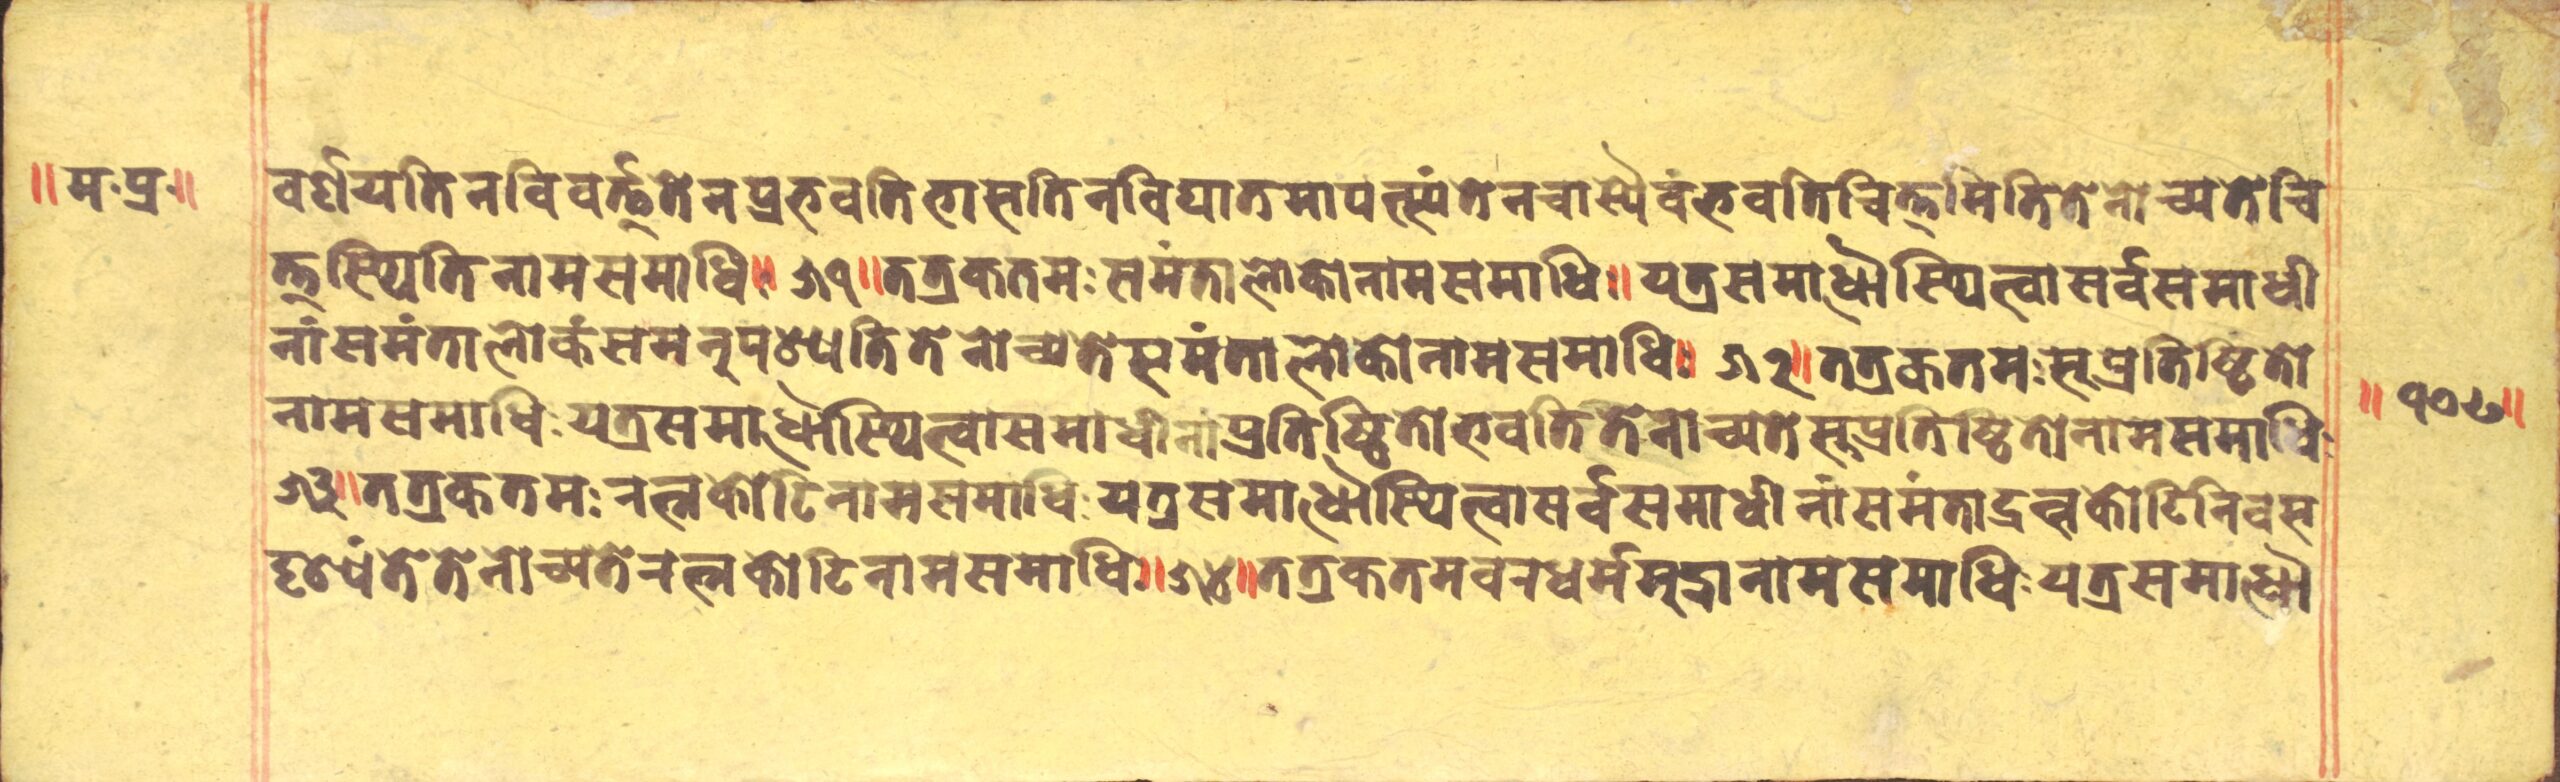 ॥मःप्रः॥
वर्णयतिनविवर्त्ततेनप्रभवतिभासतिनविघातमापत्स्यंतेनचास्यैवंभवतिचित्तमितितेनोच्यतेचि
त्तस्थितिनामसमाधिः॥७१॥तत्रकतमःसमंतालोकोनामसमाधिः॥यत्रसमाधौस्थित्वासर्वसमाधी
नांसमंतालोकंसमनुपश्यतितेनोच्यतेसमंतालोकोनामसमाधिः॥७२॥तत्रकतमःसुप्रतिष्ठितो
नामसमाधिःयत्रसमाधौस्थित्वासमाधीनांप्रतिष्ठितोभवतितेनोच्यतेसुप्रतिष्ठितोनामसमाधिः
७३॥तत्रकतमःनत्नकोटिनामसमाधिःयत्रसमाधौस्थित्वासर्वसमाधीनांसमंताद्रत्नकोटिनिवस
दृश्यंतेतेनोच्यतेनत्नकोटिनामसमाधिः॥७४॥तत्रकतमवनधर्ममुद्रानामसमाधिःयत्रसमाधौ
॥१०८॥